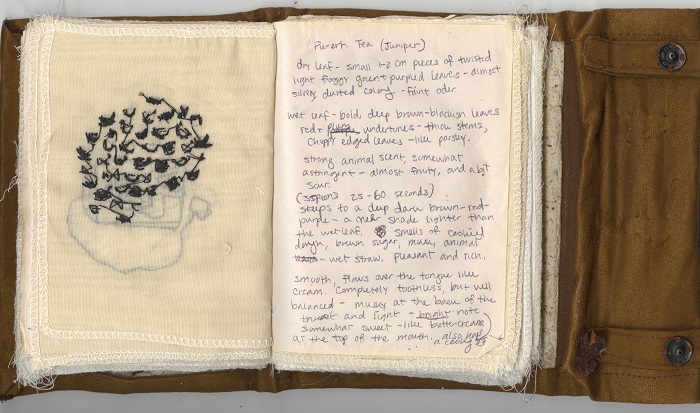 Pu-erh Tea (Juniper)
dry leaf - small 1-2 cm pieces of twisted
light foggy green + purpled leaves - almost
silvery, dusted coloring - faint oder
wet leaf - bold, deep brown-blackish leaves
red + undertones - thick stems,
choppy edged leaves - like parsley.
strong animal scent, somewhat
astringent - almost fruity, and a bit
sour.
(3 spoons 25-60 seconds)
steeps to a deep dark brown-red-
purple - a shade lighter than
the wet leaf. smells of cookied
dough, brown sugar, musk, animal
- wet straw. pleasant and rich.
smooth, flows over the tongue like
cream. completely toothless, but well
balanced - musky at the back of the
throat and light - bright note
somewhat sweet - like butter-cream
at the top of the mouth. also has
a cooling